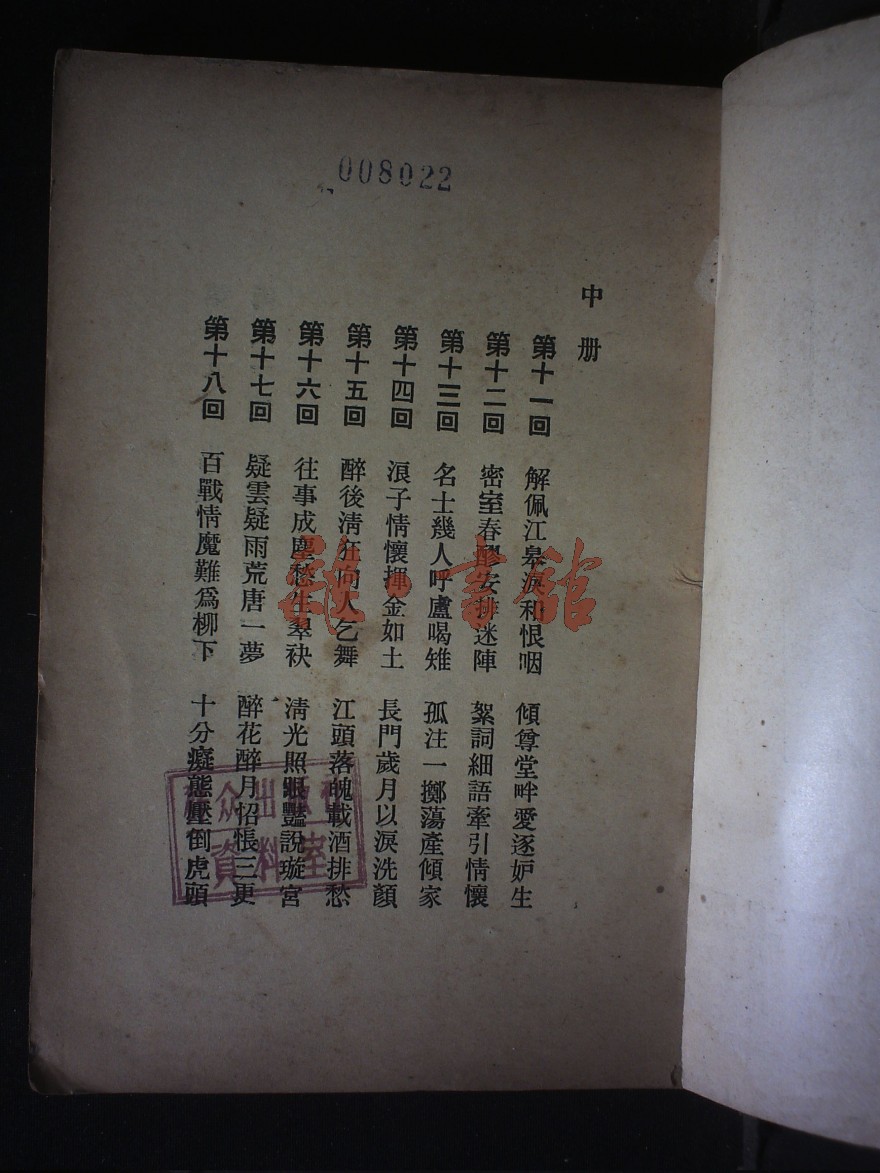 008022
中册
第十一回 解佩江皋淚和恨咽 傾尊堂畔愛逐妒生
第十二回 密室春醪安排迷陣 絮詞細語牽引情懷
第十三回 名士幾人呼盧喝雉 孤注一擲蕩產傾家
第十四回 浪子情懷揮金如土 長門歲月以淚洗顏
第十五回 醉後清狂向人乞舞 江頭落魄載酒排愁
第十六回 往事成塵愁生翠袂 清光照眼豔說璇宮
第十七回 疑雲疑雨荒唐一夢 醉花醉月悵三更
第十八回 百戰情魔難爲柳下 十分癡態壓倒虎頭
雜·書館
众出版
資料室